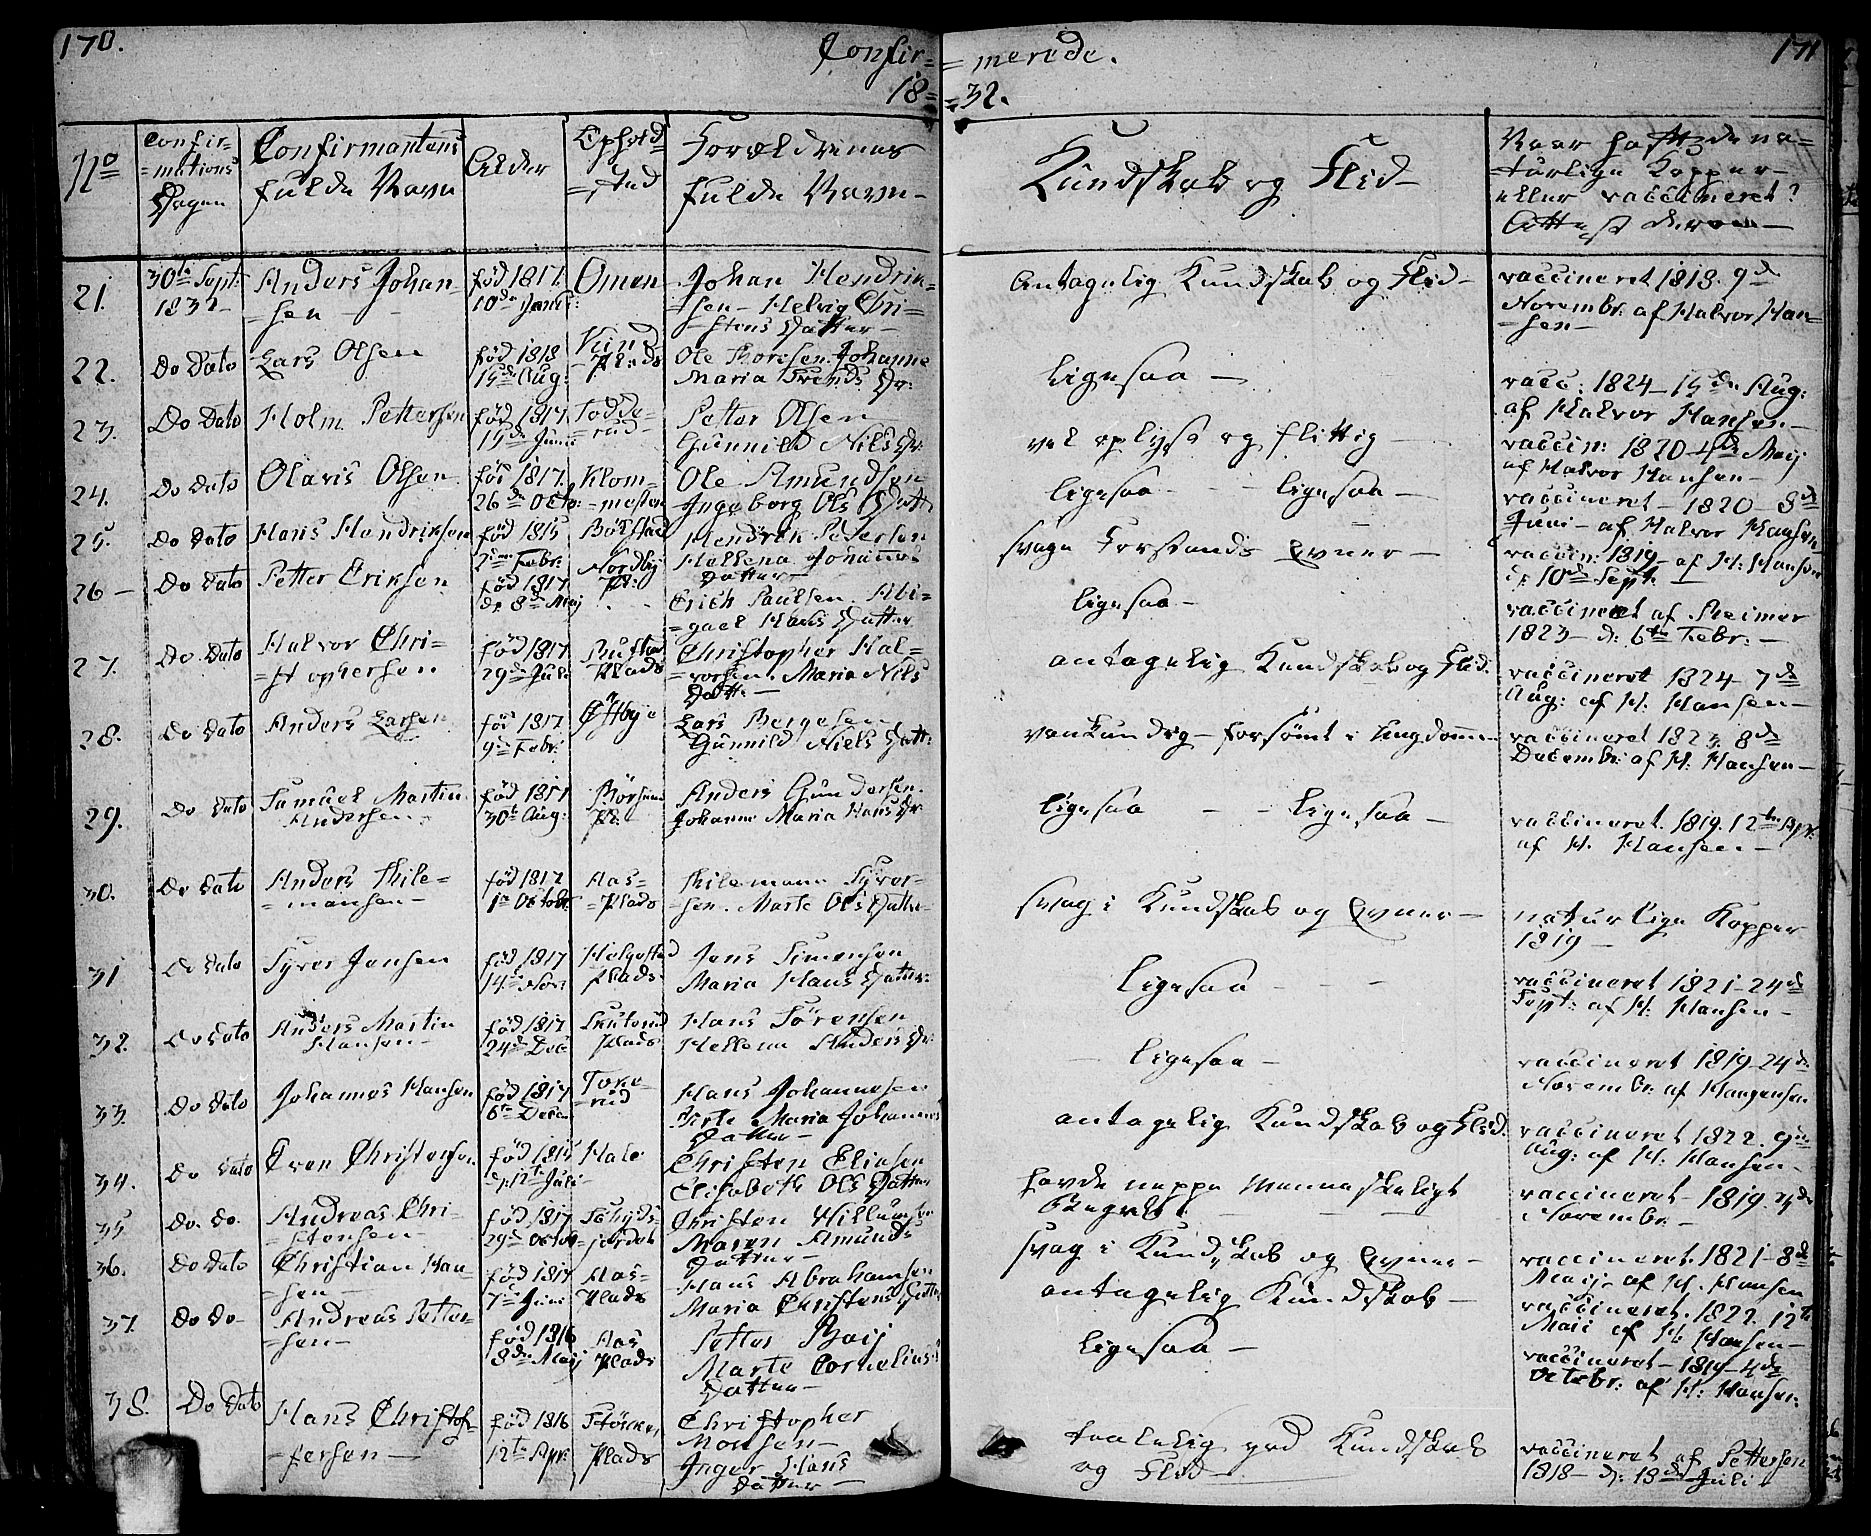 170.
Confir=
=merede.
171
18=
=32.
No
Confir=
=mations
Dagen
Confirmantens
fulde Navn
Alder
Ophold=
=sted
Forældrenes
fulde Navn-
Kundskab og Flid-
Naar haft de na=
=turlige Kopper
eller vaccineret?
Attest derom-
21.
30te Sept:
1832-
Anders Johan=
=sen
født 1817.
10de
Omen
Johan Hendrik=
=sen- Helvig Chri=
=stens Datter-
Antagelig Kundskab og Flid-
vaccineret 1818. 9de
Novembr: af Halvor Han=
=sen-
22.
Do Dato
Lars Olsen
født 1818
15de Aug:
Plads
Ole Thoresen. Johanne
Maria Dr:
ligesaa-
vacc: 1824- 15de Aug:
af Halvor Hansen-
23.
Do Dato
Holm Pettersen
født 1817.
15de Juni
Todde=
=rud-
Petter Olsen
Gunnild Nils Dr:
vel oplyst og flittig
vaccin: 1820 4de Maij
af Halvor Hansen-
24.
Do Dato
Olavis Olsen
født 1817.
26de Octo:
Klom=
=mesten
Ole Amundsen
Ingeborg Ols Datt:
ligesaa - - ligesaa-
vaccineret- 1820- 8de
Juni- af Halvor Hansen
25.
Do Dato
Hans Hendriksen
født 1815
2den Febr:
Hendrik Pedersen
Hellena Johannes
Datter-
svage Forstands Evner-
vaccin: 1819- af H: Hansen
d: 10de Sept:
26-
Do Dato
Petter Eriksen
født 1817.
d: 8de Maij
Nordby
Pl:
Erich Paulsen. Abi=
=gael Hans Datter
ligesaa-
vaccineret af Steimer
1823- d: 6te Febr:-
27.
Do Dato
Halvor Chri=
=stophersen
født 1817
29de Juli
Plads
Christopher Hal=
=vorsen. Maria Nils
Datt:-
antagelig Kundskab og Flid.
vaccineret 1824- 7de
Aug: af H. Hansen-
28.
Do Dato
Anders Larsen
født 1817.
9de Febr:
Østbye
Lars Bergesen
Gunnild Niels Datt:
vankundig- forsømt i Ungdommen
vaccineret 1823. 8de
Decembr: af H: Hansen-
29.
Do Dato
Samuel Martin
Andersen.
født 1817
30te Aug:
Pl.
Anders Gundersen.
Johanne Maria Hans Dr:
ligesaa - - ligesaa-
vaccineret. 1819. 12te
af H. Hansen-
30.
Do Dato
Anders Thile=
=mansen-
født 1817
1te Octobr:
Aas=
=Plads
Thilemann Syver=
=sen. Marte Ols Datter-
svag i Kundskab og Evner-
naturlige Kopper
1819-
31
Do Dato
Syver Jensen
født 1817
14de Nov:
Helgestad
Plads
Jens Simensen
Maria Hans Datter:
ligesaa
vaccineret 1821- 24de
Sept: af H: Hansen-
32.
Do Dato
Anders Martin
Hansen-
født 1817
24de Dec
Skuterud
Plads
Hans Sörensen
Hellena Anders Dr:
ligesaa-
vaccineret 1819- 24de
Novembr: af
33.
Do Dato
Johannes Hansen
født 1817
6te Decem
Toke=
=rud
Hans Johannesen
Berte Maria Johannes
Datter-
antagelig Kundskab og Flid.
vaccineret 1822. 9de
Aug: af H: Hansen-
34.
Do Dato
Even Christensen
født 1815
d: 12te Juli
Christen Eliasen
Elisabeth Ols Datter
havde neppe menneskeligt
Begreb.
vaccineret- 1819.
Novembr:-
35
Do. Do.
Andreas Chri=
=stensen-
født 1817
29de Octob
Christen
Maren Amunds
Datter-
svag i Kundskab og Evner-
vaccineret. 1821- 8de
Maij- af H. Hansen
36.
Do Dato
Christian Han=
=sen-
født 1817
7de Juni
Aas=
Plads
Hans Abrahamsen
Maria Christens Datter
antagelig Kundskab-
vaccineret. 1822. 12te
Maii af H: Hansen-
37.
Do Do-
Andreas Petter=
=sen-
født 1816
8de Maij
Aas
Plads
Petter Boij
Marte Cornelius
Datter-
ligesaa-
vaccineret- 1819- 4de
Octobr: af H: Hansen:
38.
Do Dato
Hans Christof=
=fersen-
født 1816
12te Apr:
Plads
Christopher
Monsen-
Inger Hans
Datter-
taalelig god Kundskab
og Flid
vaccineret af Pettersen
1818- d: 13de Juli